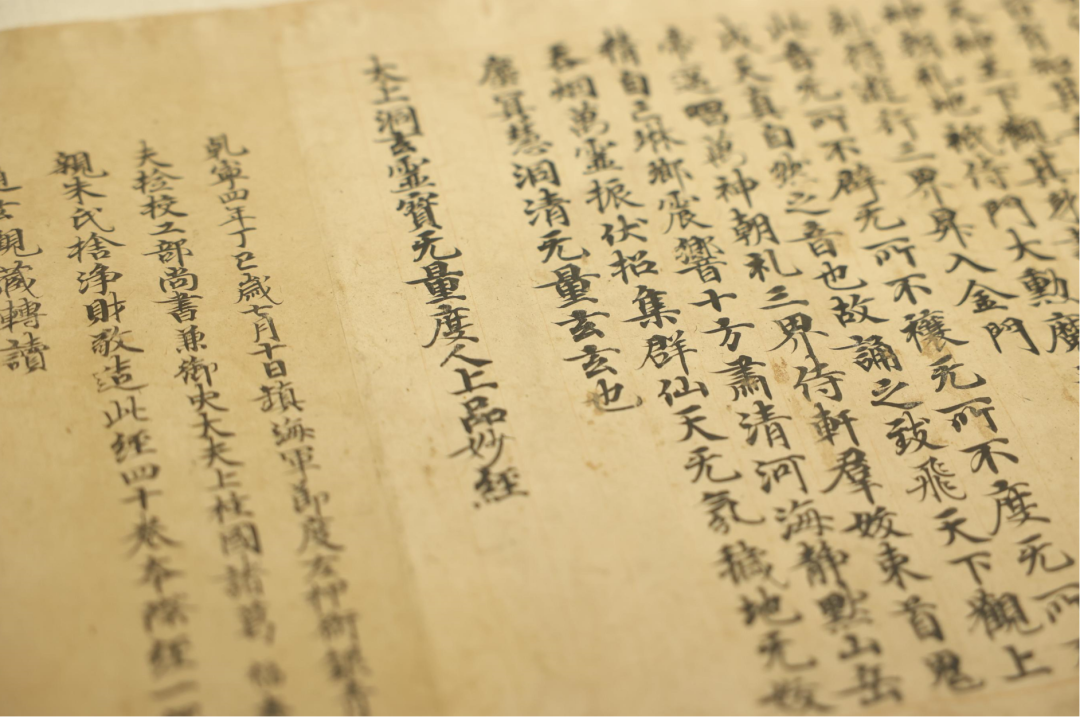 神朝礼地祇侍門大勳魔
剋得遊行三界昇入金門
此音无所不辟无所不禳无所不度无所
成天真自然之音也故誦之致飛天下觀上
帝遥唱萬神朝礼三界侍軒群妖束首鬼
精自亡琳琅震響十方肅清河海靜默山岳
吞烟萬靈振伏招集群仙天无氛穢地无妖
塵冥慧洞清无量玄玄也
太上洞玄靈寶无量度人上品妙經
乾寧四年丁巳歲七月十日鎮海軍節度左押衙銀青
夫撿校工部尚書兼御史大夫上柱國諸葛
親朱氏捨淨財敬造此經四十卷奉際經一
玄觀藏轉讀